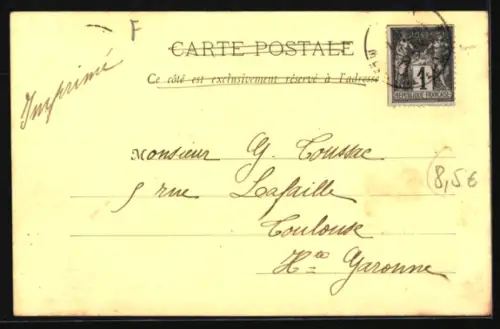 F
CARTE POSTALE
Ce côté est exclusivement réservé à l'adresse
Imprimé
POSTES
1c
REPUBLIQUE FRANÇAISE
Monsieur G. Toussac
5 rue Lafaille
Toulouse
Hte Garonne
8,5€